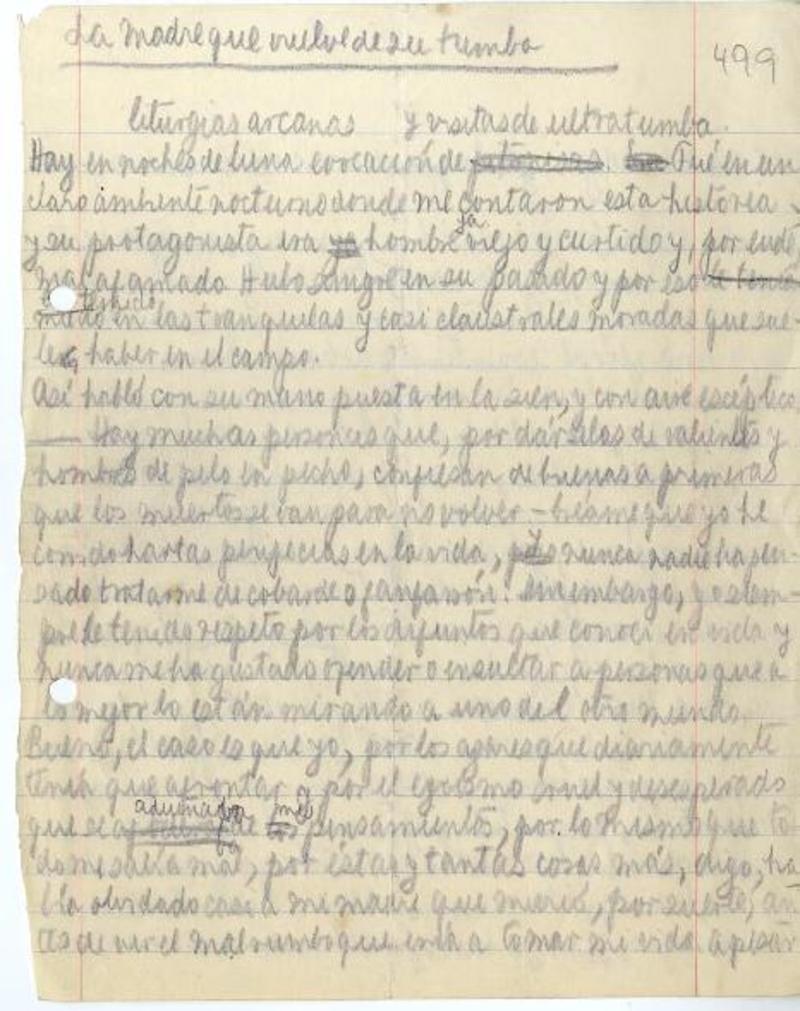 La madre que vuelve de su tumba
499
liturgias arcanas y visitas de ultratumba.
Hay en noches de luna evocación de pitonisas. Fué en un
claro ambiente nocturno donde me contaron esta historia
y su protagonista era ya hombre viejo y curtido y, por ende,
mal afamado. Hubo sangre en su pasado y por eso
en las tranquilas y casi claustrales moradas que sue-
len haber en el campo.
Así habló con su mano puesta en la sien, y con aire escéptico
— Hay muchas personas que, por dárselas de valientes y
hombres de pelo en pecho, confiesan de buenas a primeras
que los muertos se van para no volver – que yo he
cometido hartas peripecias en la vida, pero nunca nadie ha pen-
sado tratarme de cobarde o fanfarrón. Sin embargo, yo siem-
pre he tenido respeto por los difuntos que conocí en vida y
nunca me ha gustado ofender o insultar a personas que a
lo mejor lo están mirando a uno del otro mundo.
Bueno, el caso es que yo, por los azares que diariamente
tenía que afrontar y por el egoísmo cruel y desesperado
que se adueñaba de mis pensamientos, por lo mismo que to-
do me salía mal, por éstas y tantas cosas más, digo, ha-
bía olvidado casi a mi madre que murió, por suerte, an-
tes de ver el mal rumbo que iba a tomar mi vida a pesar